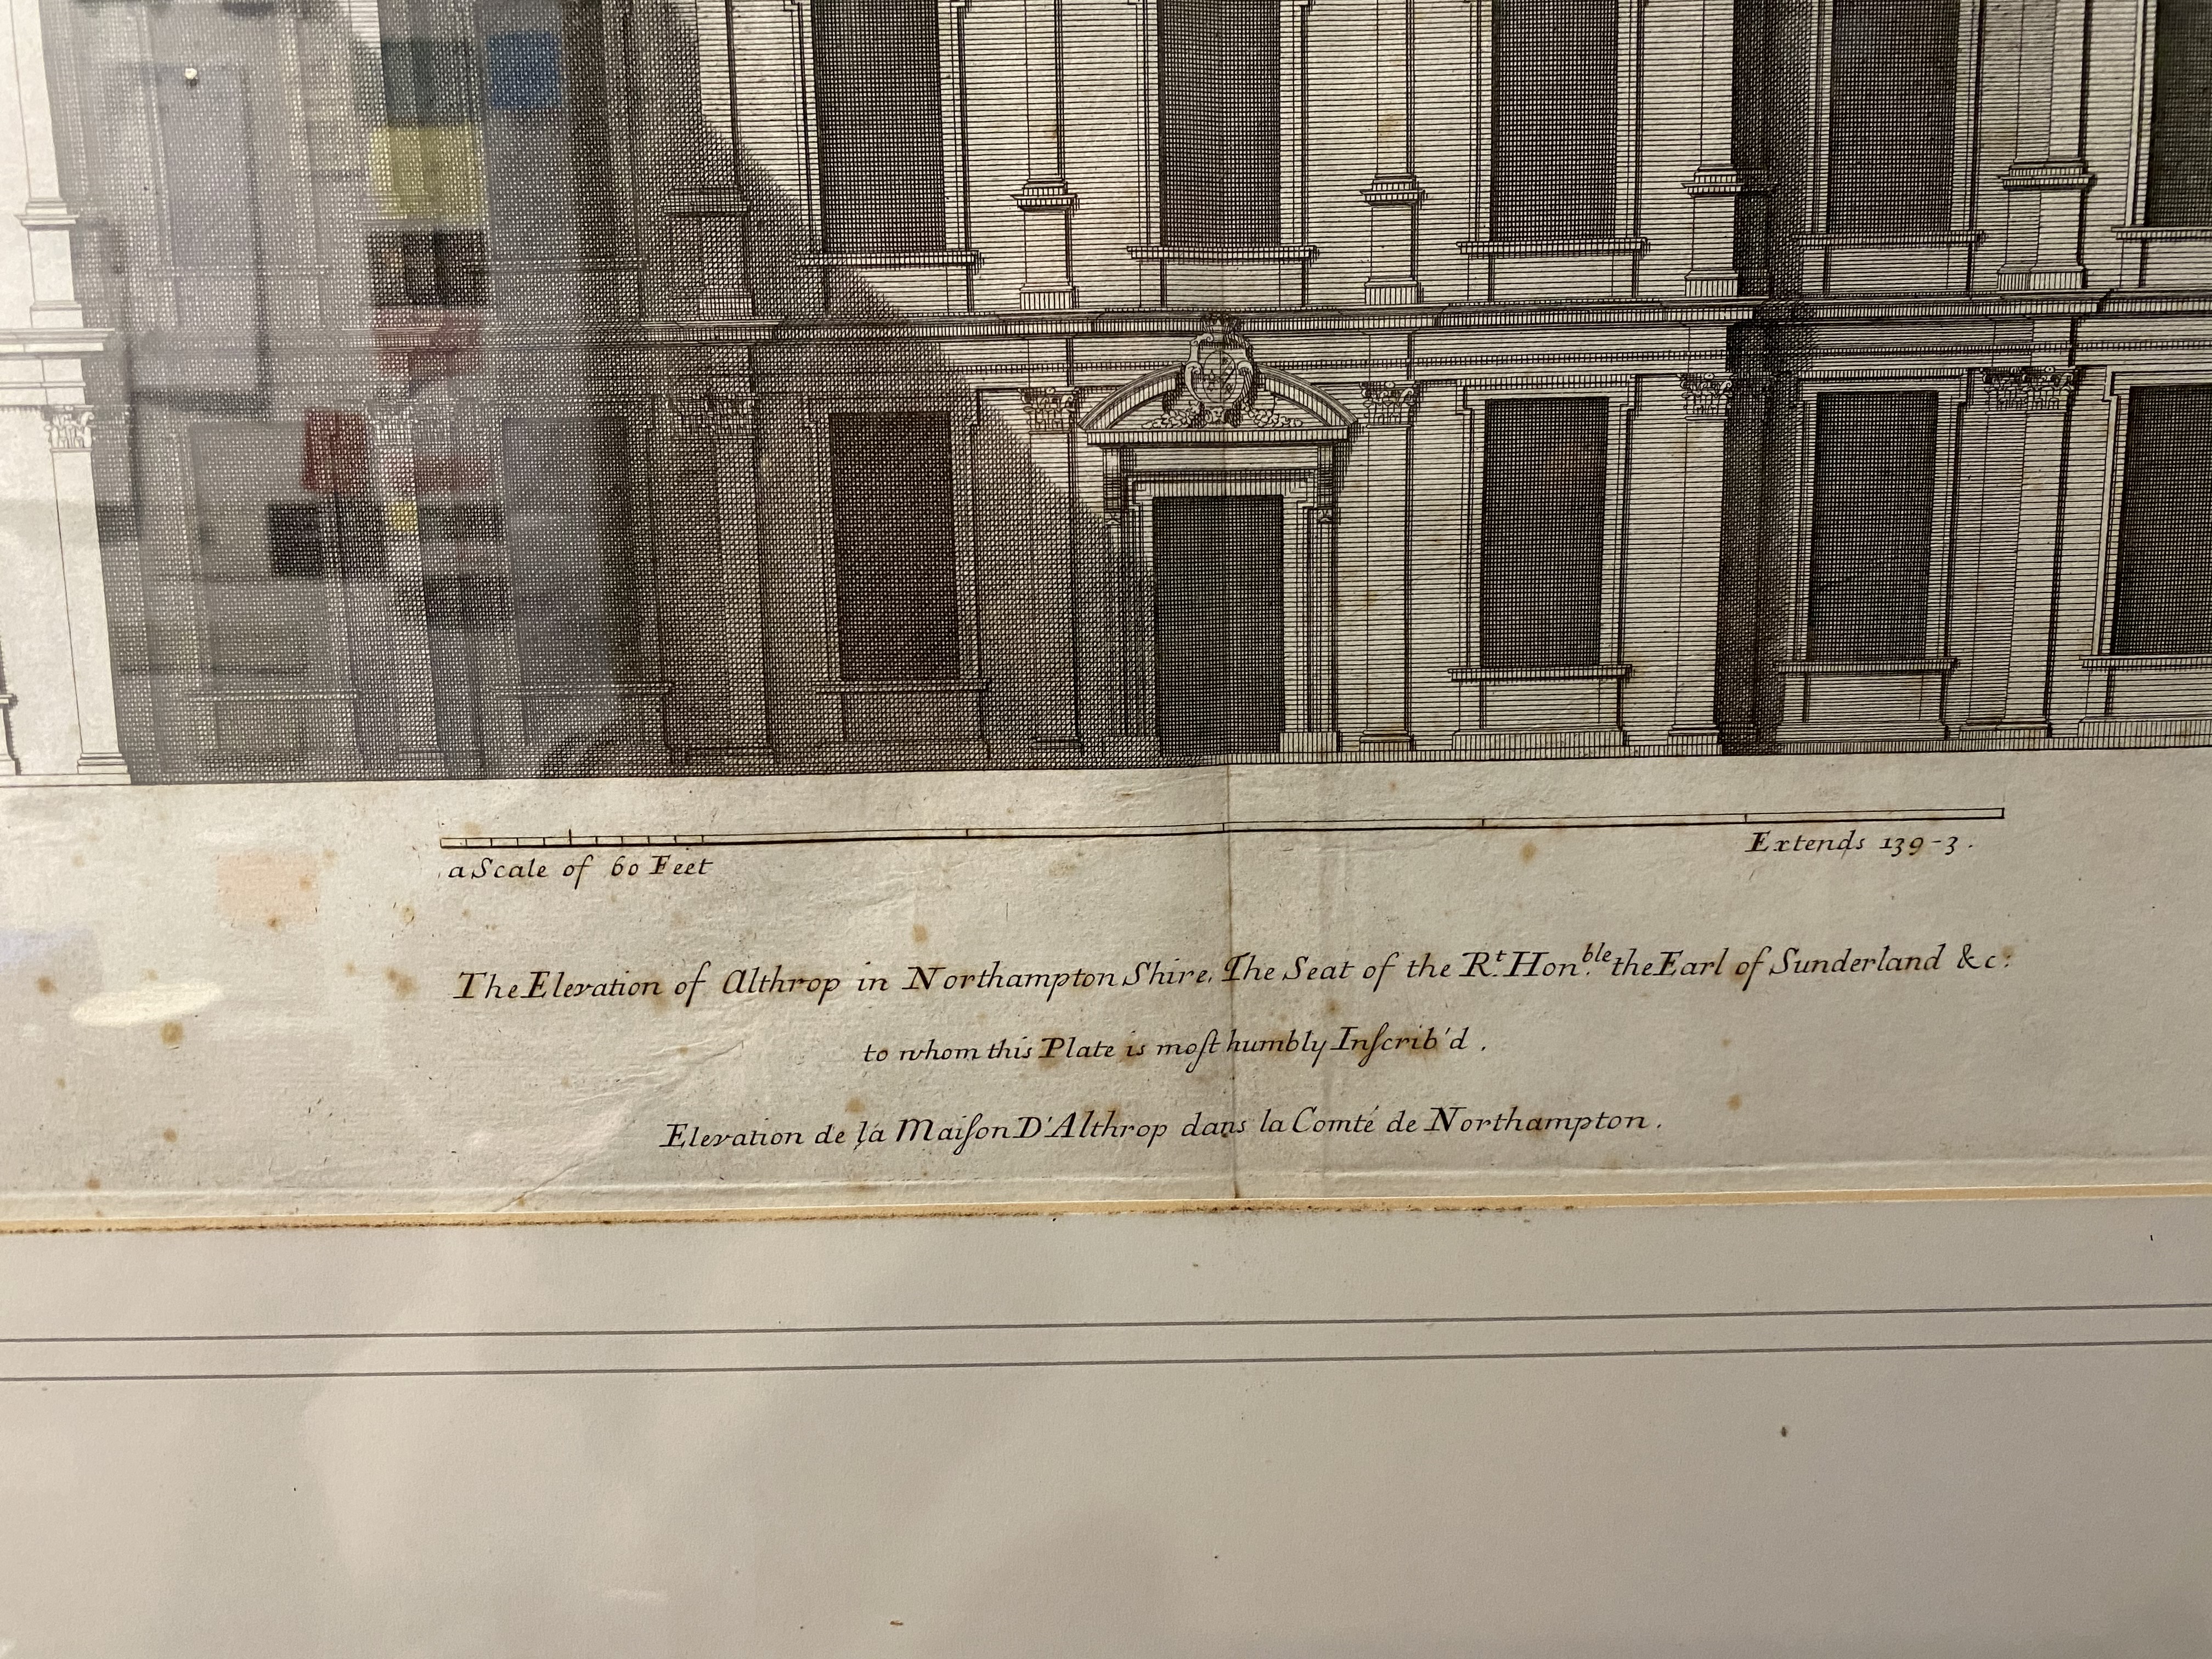 a Scale of 60 Feet
Extends 139-3.
The Elevation of Althrop in Northampton Shire, The Seat of the Rt. Hon.ble the Earl of Sunderland &c:
to whom this Plate is moſt humbly Inſcrib'd.
Elevation de la Maiſon D'Althrop dans la Comté de Northampton.